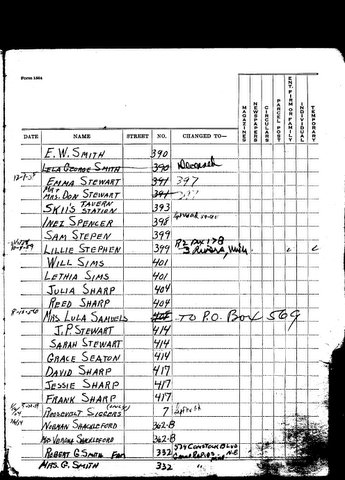 Form 1564
MAGAZINES
NEWSPAPERS
CIRCULARS
PARCEL POST
ENT. FIRM OR FAMILY
INDIVIDUAL
TEMPORARY
DATE NAME STREET NO. CHANGED TO—
E. W. SMITH 390
LELA GEORGE SMITH 390 Deceased
EMMA STEWART 391 397
MRS. DON STEWART 391
SKII'S TAVERN STATION 393
INEZ SPENCER 398
SAM STEPEN 399
LILLIE STEPHEN 399 R2 Box 178
3 Rivers, Mich.
WILL SIMS 401
LETHIA SIMS 401
JULIA SHARP 404
REED SHARP 404
8-10-56 MRS LULA SAMUELS TO P.O. BOX 569
J.P. STEWART 414
SARAH STEWART 414
GRACE SEATON 414
DAVID SHARP 417
JESSIE SHARP 417
FRANK SHARP 417
ROOSEVOLT SIGGERS 7
NORMAN SHACKLEFORD 362-B
VERONA SHACKLEFORD 362-B
ROBERT G SMITH Fam 332 N.E.
MRS. G. SMITH 332 "